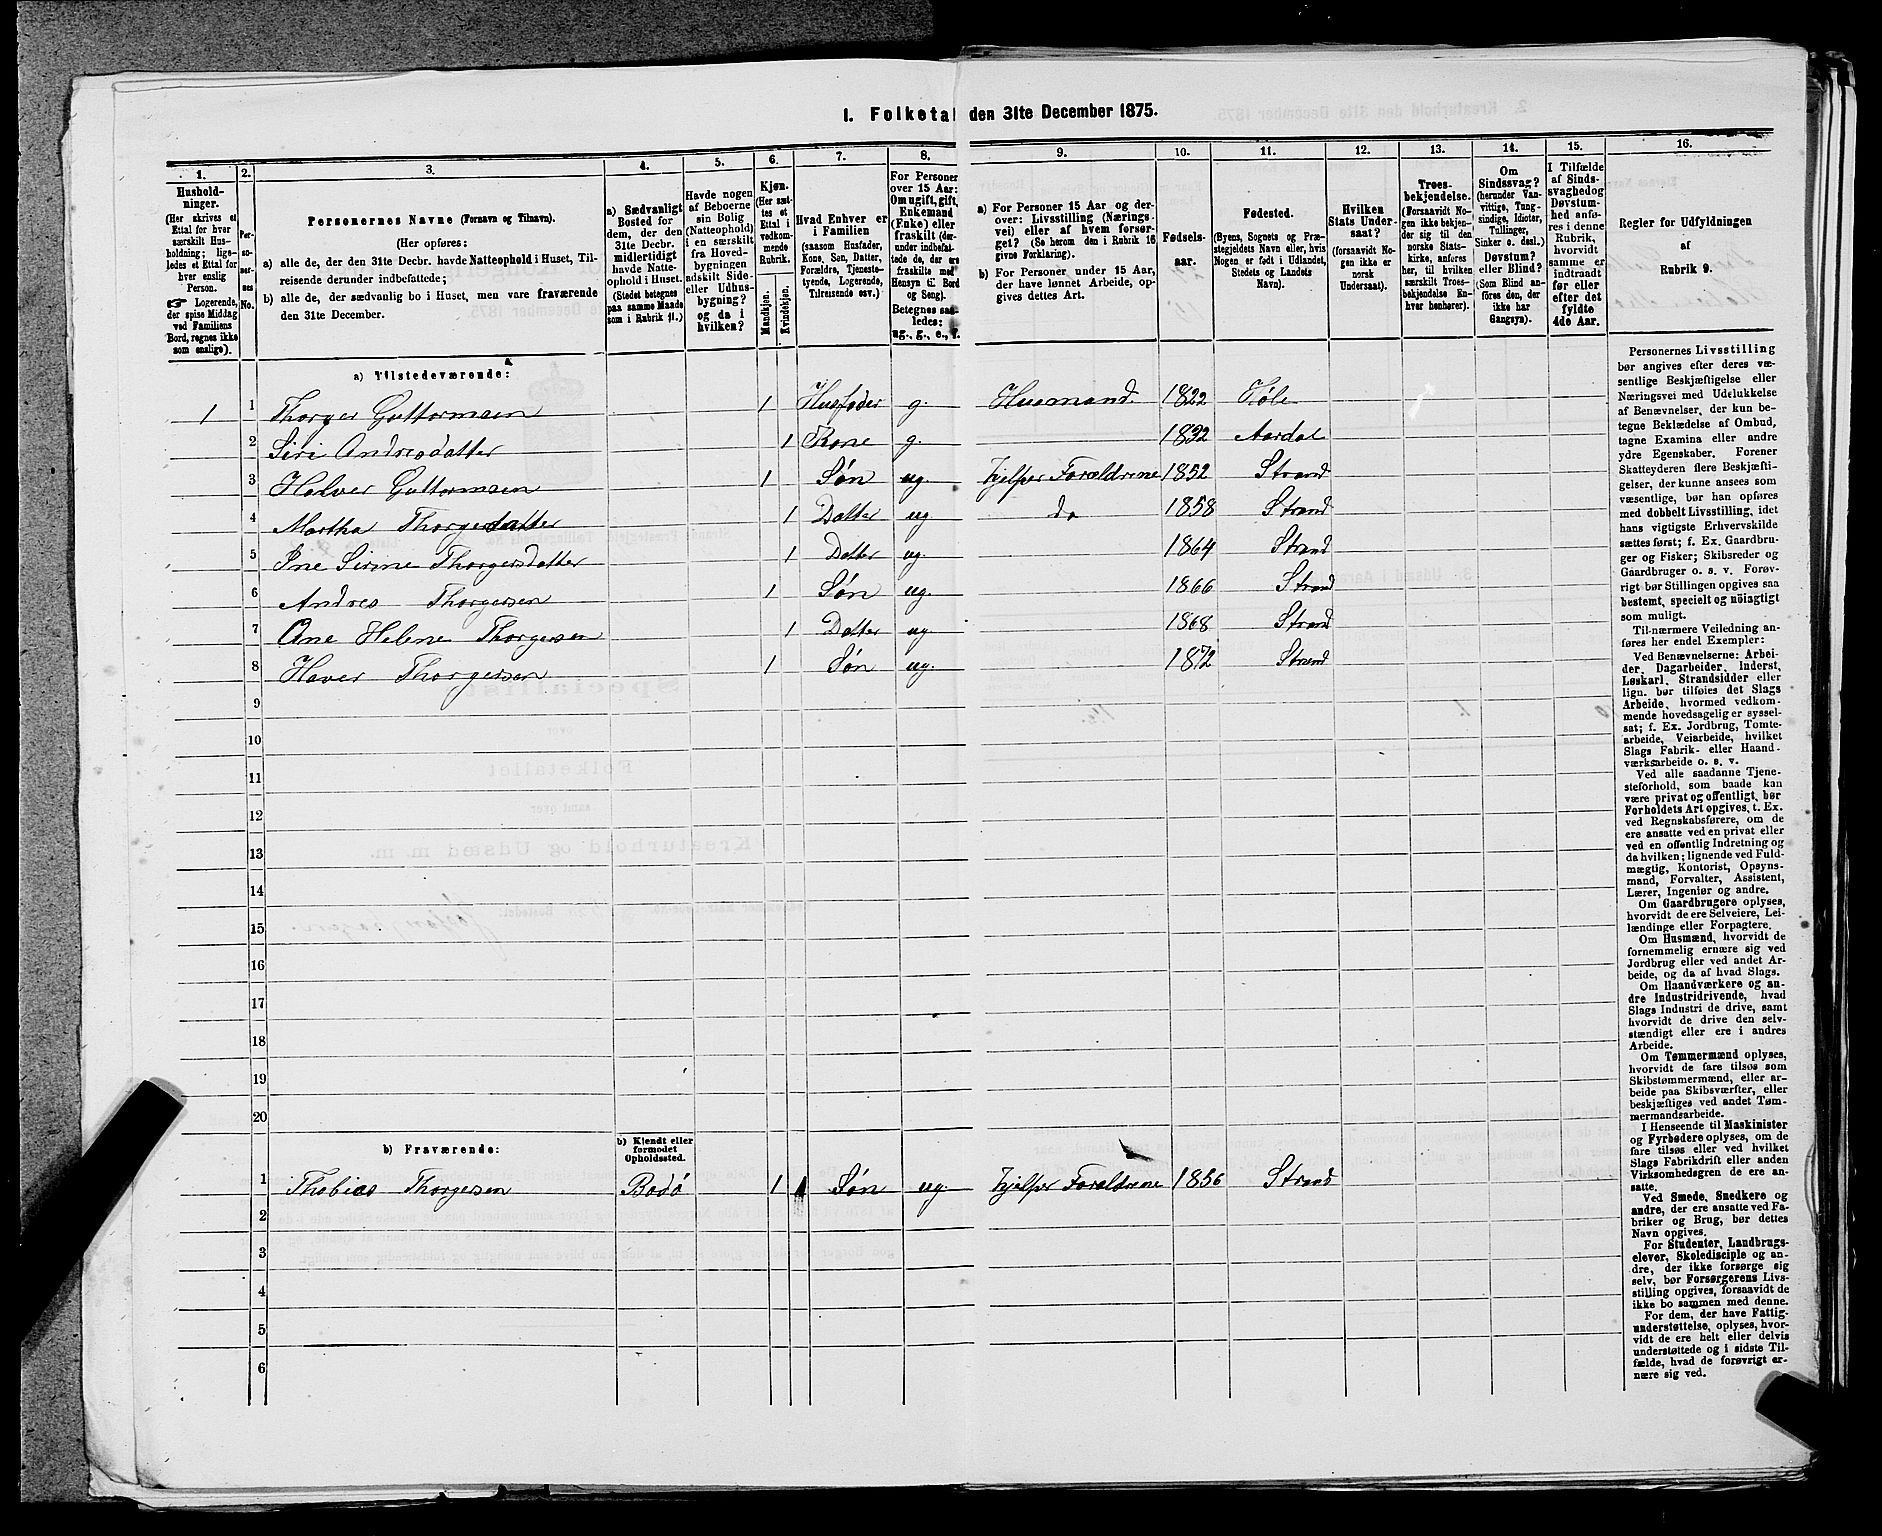 1. Folketal den 31te December 1875.
1. 2. 3. 4. 5. 6. 7. 8. 9. 10. 11. 12. 13. 14. 15. 16.
Hushold-
ninger.
(Her skrives et
Ettal for hver
særskilt Hus-
holdning; lige-
ledes et Ettal for
hver enslig
Person.
☞ Logerende,
der spise Middag
ved Familiens
Bord, regnes ikke
som enslige).
Per-
so-
ner-
nes
No.
Personernes Navne (Fornavn og Tilnavn).
(Her opføres:
a) alle de, der den 31te Decbr. havde Natteophold i Huset, Til-
reisende derunder indbefattede;
b) alle de, der sædvanlig bo i Huset, men vare fraværende
den 31te December.
a) Sædvanligt
Bosted for
dem, der den
31te Decbr.
midlertidigt
havde Natte-
ophold i Huset.
(Stedet betegnes
paa samme Maade
som i Rubrik 11.)
Havde nogen
af Beboerne
sin Bolig
(Natteophold)
i en særskilt
fra Hoved-
bygningen
adskilt Side-
eller Udhus-
bygning?
og da i
hvilken?
Kjøn.
(Her sæt-
tes et
Ettal i
vedkom-
mende
Rubrik.
Mandkjøn.
Kvindekjøn.
Hvad Enhver er
i Familien
(saasom Husfader,
Kone, Søn, Datter,
Forældre, Tjeneste-
tyende, Logerende,
Tilreisende osv.)
For Personer
over 15 Aar:
Om ugift, gift,
Enkemand
(Enke) eller
fraskilt (der-
under indbefat-
tede de, der ere
fraskilte med
Hensyn til Bord
og Seng).
Betegnes saa-
ledes:
ug., g., e., f.
a) For Personer 15 Aar og der-
over: Livsstilling (Nærings-
vei) eller af hvem forsør-
get? (Se herom den i Rubrik 16
givne Forklaring).
b) For Personer under 15 Aar,
der have lønnet Arbeide, op-
gives dettes Art.
Fødsels-
aar.
Fødested.
(Byens, Sognets og Præ-
stegjeldets Navn eller, hvis
Nogen er født i Udlandet,
Stedets og Landets
Navn).
Hvilken
Stats Under-
saat?
(forsaavidt No-
gen ikke er
norsk
Undersaat).
Troes-
bekjendelse.
(Forsaavidt No-
gen ikke bekjen-
der sig til den
norske Stats-
kirke, anføres
her, til hvilken
særskilte Troes-
bekjendelse En-
hver henhører).
Om
Sindssvag?
(herunder Van-
vittige, Tung-
sindige, Idioter,
Tullinger,
Sinker o. desl.)
Døvstum?
eller Blind?
(Som Blind an-
føres den, der
ikke har
Gangsyn).
I Tilfælde
af Sinds-
svaghed og
Døvstum-
hed anfø-
res i denne
Rubrik,
hvorvidt
samme er
indtraadt
før eller
efter det
fyldte
4de Aar.
Regler for Udfyldningen
af
Rubrik 9.
a) Tilstedeværende:
1 1 Thorger Guttormsen 1 Husfader g. Husmand 1822 Høle
2 Siri Andreasdatter 1 Kone g. 1832 Aardal
3 Halver Guttormsen 1 Søn ug. hjelper Forældrene 1852 Strand
4 Martha Thorgersdatter 1 Datter ug do 1858 Strand
5 Ine Sirine Thorgersdatter 1 Datter ug. 1864 Strand
6 Andres Thorgersen 1 Søn ug. 1866 Strand
7 Ane Helene Thorgersen 1 Datter ug. 1868 Strand
8 Haver Thorgersen 1 Søn ug. 1872 Strand
9
10
11
12
13
14
15
16
17
18
19
20
b) Fraværende:
b) Kjendt eller
formodet
Opholdssted.
1 Thobias Thorgersen Bodø 1 Søn ug. hjelper Forældrene 1856 Strand
2
3
4
5
6
Personernes Livsstilling
bør angives efter deres væ-
sentlige Beskjæftigelse eller
Næringsvei med Udelukkelse
af Benævnelser, der kun be-
tegne Beklædelse af Ombud,
tagne Examina eller andre
ydre Egenskaber. Forener
Skatteyderen flere Beskjæfti-
gelser, der kunne ansees som
væsentlige, bør han opføres
med dobbelt Livsstilling, idet
hans vigtigste Erhvervskilde
sættes først; f. Ex. Gaardbru-
ger og Fisker; Skibsreder og
Gaardbruger o. s. v. Forøv-
rigt bør Stillingen opgives saa
bestemt, specielt og nöiagtigt
som muligt.
Til-nærmere Veiledning an-
føres her endel Exempler:
Ved Benævnelserne: Arbei-
der, Dagarbeider, Inderst,
Løskarl, Strandsidder eller
lign. bør tilføies det Slags
Arbeide, hvormed vedkom-
mende hovedsagelig er syssel-
sat; f. Ex. Jordbrug, Tomte-
arbeide, Veiarbeide, hvilket
Slags Fabrik- eller Haand-
værksarbeide o. s. v.
Ved alle saadanne Tjene-
steforhold, som baade kan
være privat og offentligt, bør
Forholdets Art opgives, t. Ex.
ved Regnskabsførere, om de
ere ansatte ved en privat eller
ved en offentlig Indretning og
da hvilken; lignende ved Fuld-
mægtig, Kontorist, Opsyns-
mand, Forvalter, Assistent,
Lærer, Ingeniør og andre.
Om Gaardbrugere oplyses,
hvorvidt de ere Selveiere, Lei-
lændinge eller Forpagtere.
Om Husmænd, hvorvidt de
fornemmelig ernære sig ved
Jordbrug eller ved andet Ar-
beide, og da af hvad Slags.
Om Haandværkere og an-
dre Industridrivende, hvad
Slags Industri de drive, samt
hvorvidt de drive den selv-
stændigt eller ere i andres
Arbeide.
Om Tømmermænd oplyses,
hvorvidt de fare tilsøs som
Skibstømmermænd, eller ar-
beide paa Skibsværfter, eller
beskjæftiges ved andet Tøm-
mermandsarbeide.
I Henseende til Maskinister
og Fyrbødere oplyses, om de
fare tilsøs eller ved hvilket
Slags Fabrikdrift eller anden
Virksomhedsgren de ere an-
satte.
Ved Smede, Snedkere og
andre, der ere ansatte ved Fa-
briker og Brug, bør dettes
Navn opgives.
For Studenter, Landbrugs-
elever, Skoledisciple og an-
dre, der ikke forsørge sig
selv, bør Forsørgerens Livs-
stilling opgives, forsaavidt de
ikke bo sammen med denne.
For dem, der have Fattig-
understøttelse, oplyses, hvor-
vidt de ere helt eller delvis
understøttede og i sidste Til-
fælde, hvad de forøvrigt er-
nære sig ved.